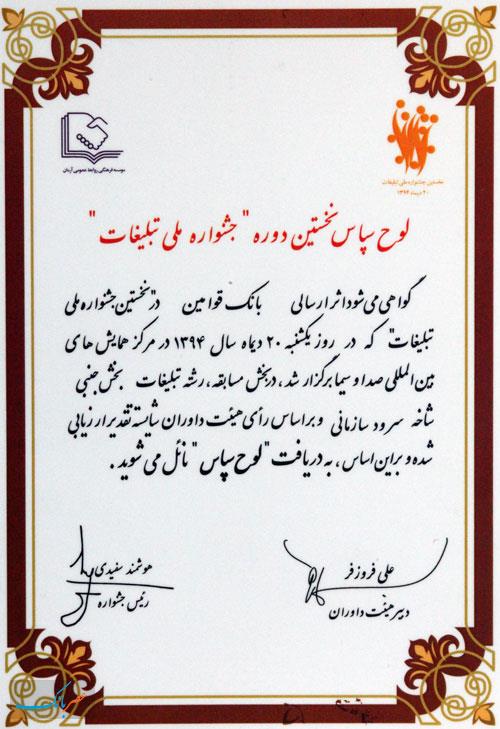 نخستین جشنواره ملی تبلیغات
۲۰ دیماه ۱۳۹۴
موسسه فرهنگی روابط عمومی آرمان
لوح سپاس نخستین دوره "جشنواره ملی تبلیغات"
گواهی می شود اثر ارسالی بانک قوامین در "نخستین جشنواره ملی
تبلیغات" که در روز یکشنبه ۲۰ دیماه سال ۱۳۹۴ در مرکز همایش های
بین المللی صدا و سیما برگزار شد، در بخش مسابقه، رشته تبلیغات بخش جنبی
شاخه سرود سازمانی و بر اساس رأی هیئت داوران شایسته تقدیر ارزیابی
شده و بر این اساس، به دریافت "لوح سپاس" نائل می شوید.
علی فروزفر
دبیر هیئت داوران
هوشمند سفیدی
رئیس جشنواره
عصر بانک